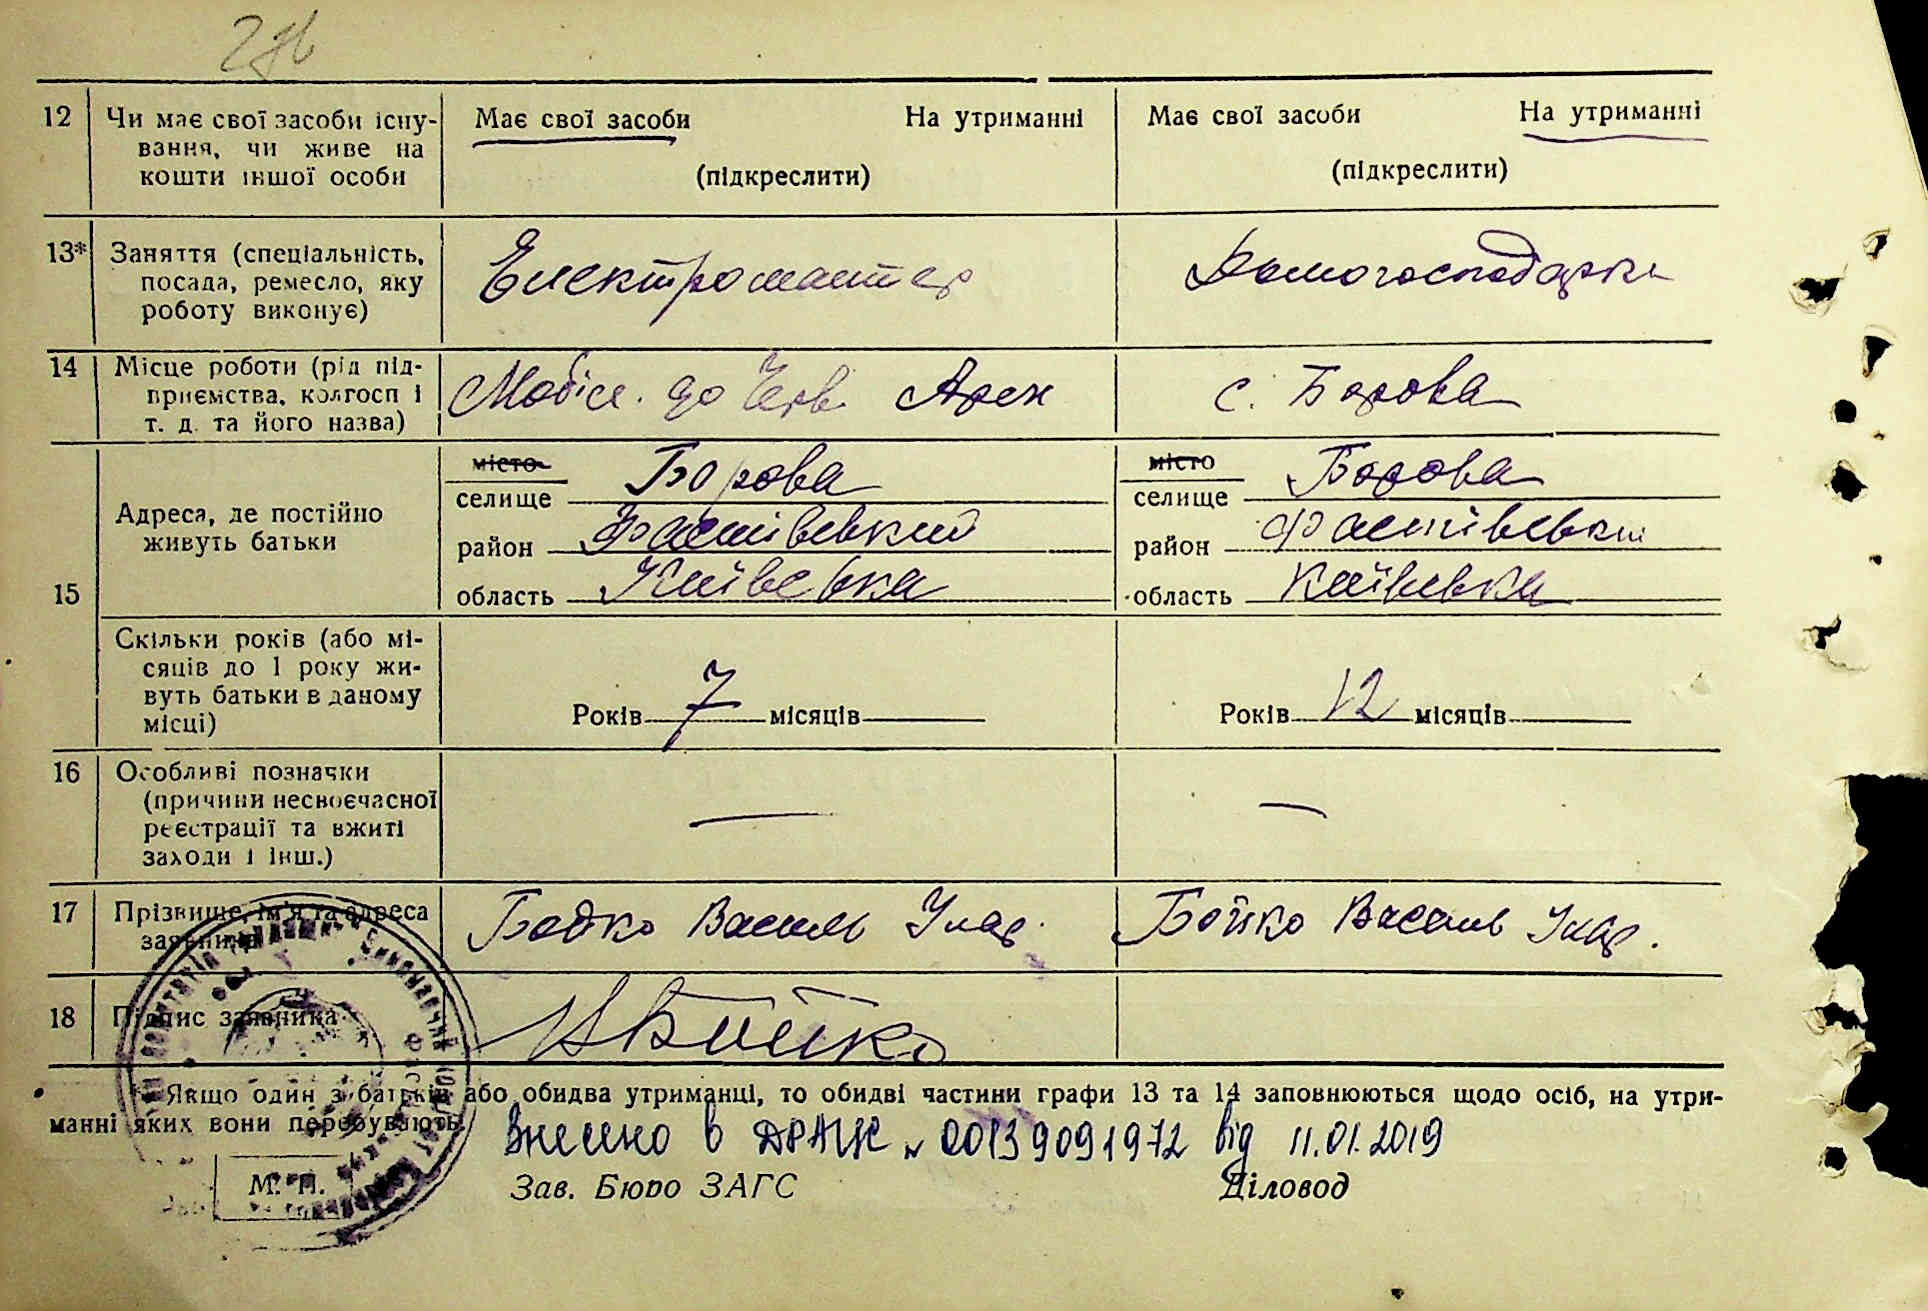 12 Чи має свої засоби існу-
вання, чи живе на
кошти іншої особи
Має свої засоби На утриманні
(підкреслити)
Має свої засоби На утриманні
(підкреслити)
13* Заняття (спеціальність,
посада, ремесло, яку
роботу виконує)
Електромантер
Домогосподарка
14 Місце роботи (рід під-
приємства, колгосп і
т. д. та його назва)
Мобіл. до Черв. Арм
с. Борова
15 Адреса, де постійно
живуть батьки
місто
селище Борова
район Фастівський
область Київська
місто
селище Борова
район Фастівський
область Київська
Скільки років (або мі-
сяців до 1 року жи-
вуть батьки в даному
місці)
Років 7 місяців
Років 12 місяців
16 Особливі позначки
(причини несвоєчасної
реєстрації та вжиті
заходи і інш.)
—
—
17 Прізвище, ім'я та адреса
заявника
Бойко Василь Улар.
Бойко Василь Улар.
18 Підпис заявника
Бойко
* Якщо один з батьків або обидва утриманці, то обидві частини графи 13 та 14 заповнюються щодо осіб, на утри-
манні яких вони перебувають.
Внесено в ДРАЦС № 00139091972 від 11.01.2019
М. П.
Зав. Бюро ЗАГС Діловод